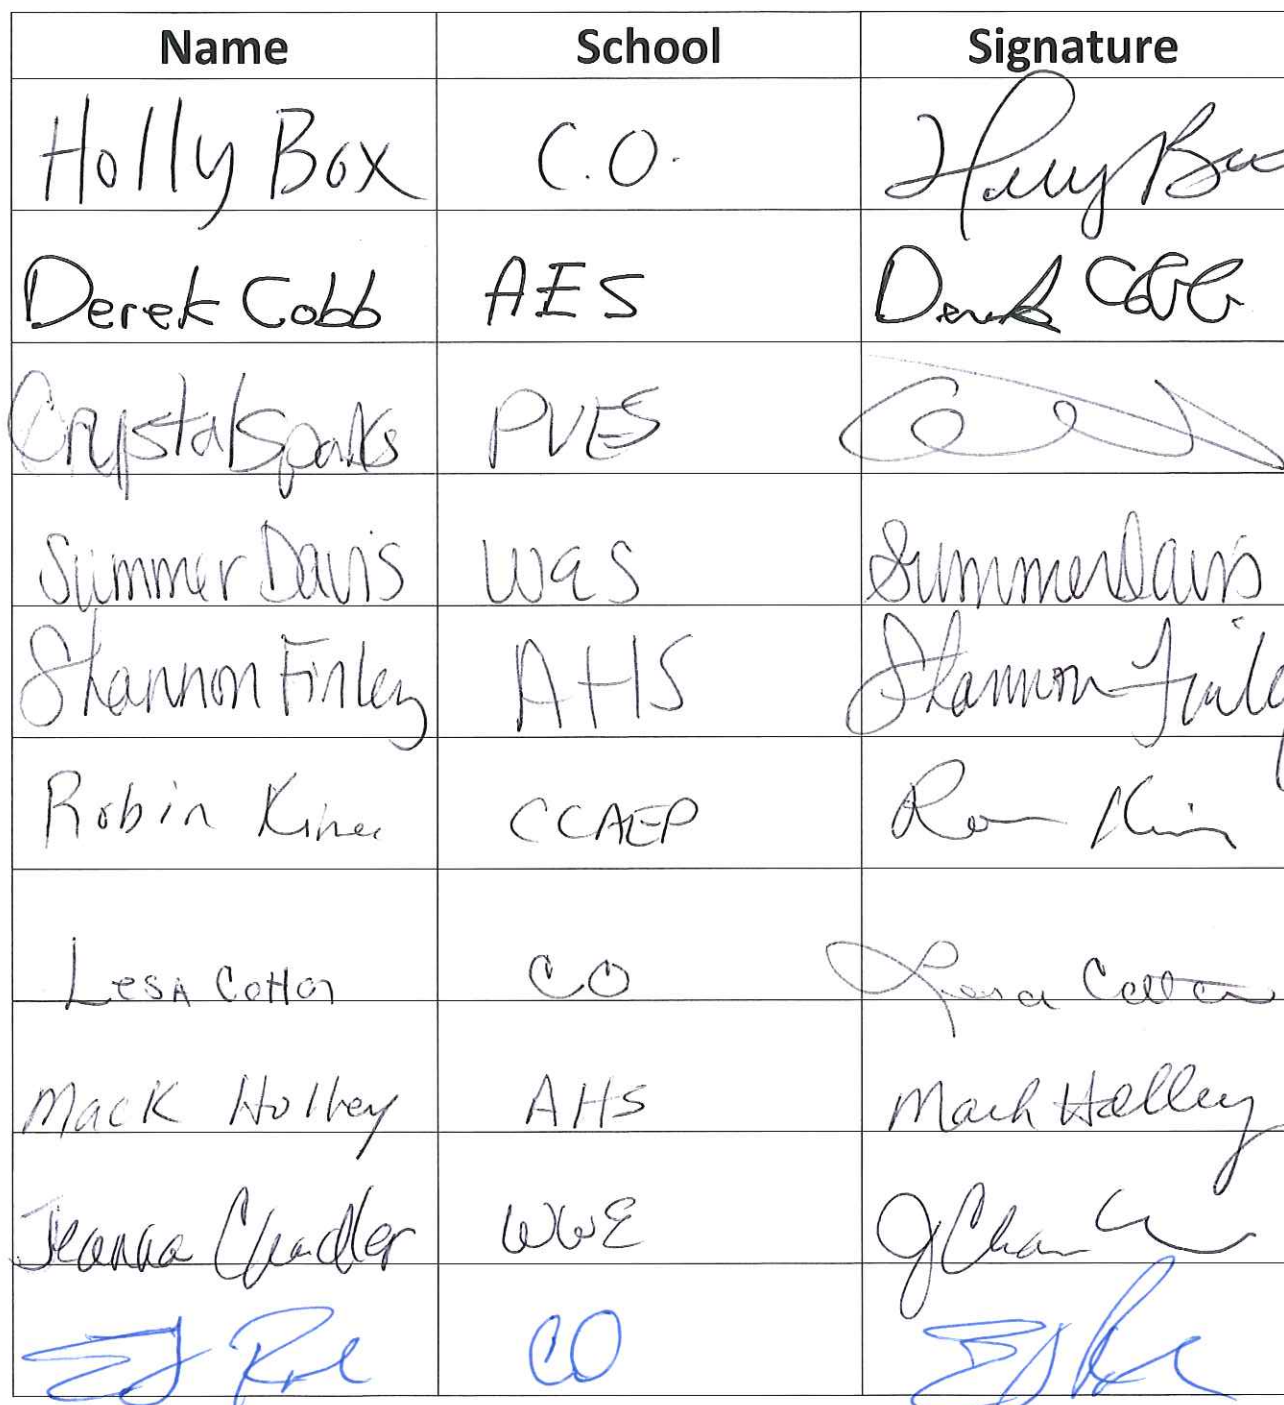 Name School Signature
Holly Box C.O. Holly Box
Derek Cobb AES Derek Cobb
Crystal Sparks PVES
Summer Davis WES Summer Davis
Shannon Finley AHS Shannon Finley
Robin CCAEP
Lesa Cotton CO Lesa Cotton
Mack Holley AHS Mack Holley
Jeanna Chandler WWE J Chan
EJ CO EJ